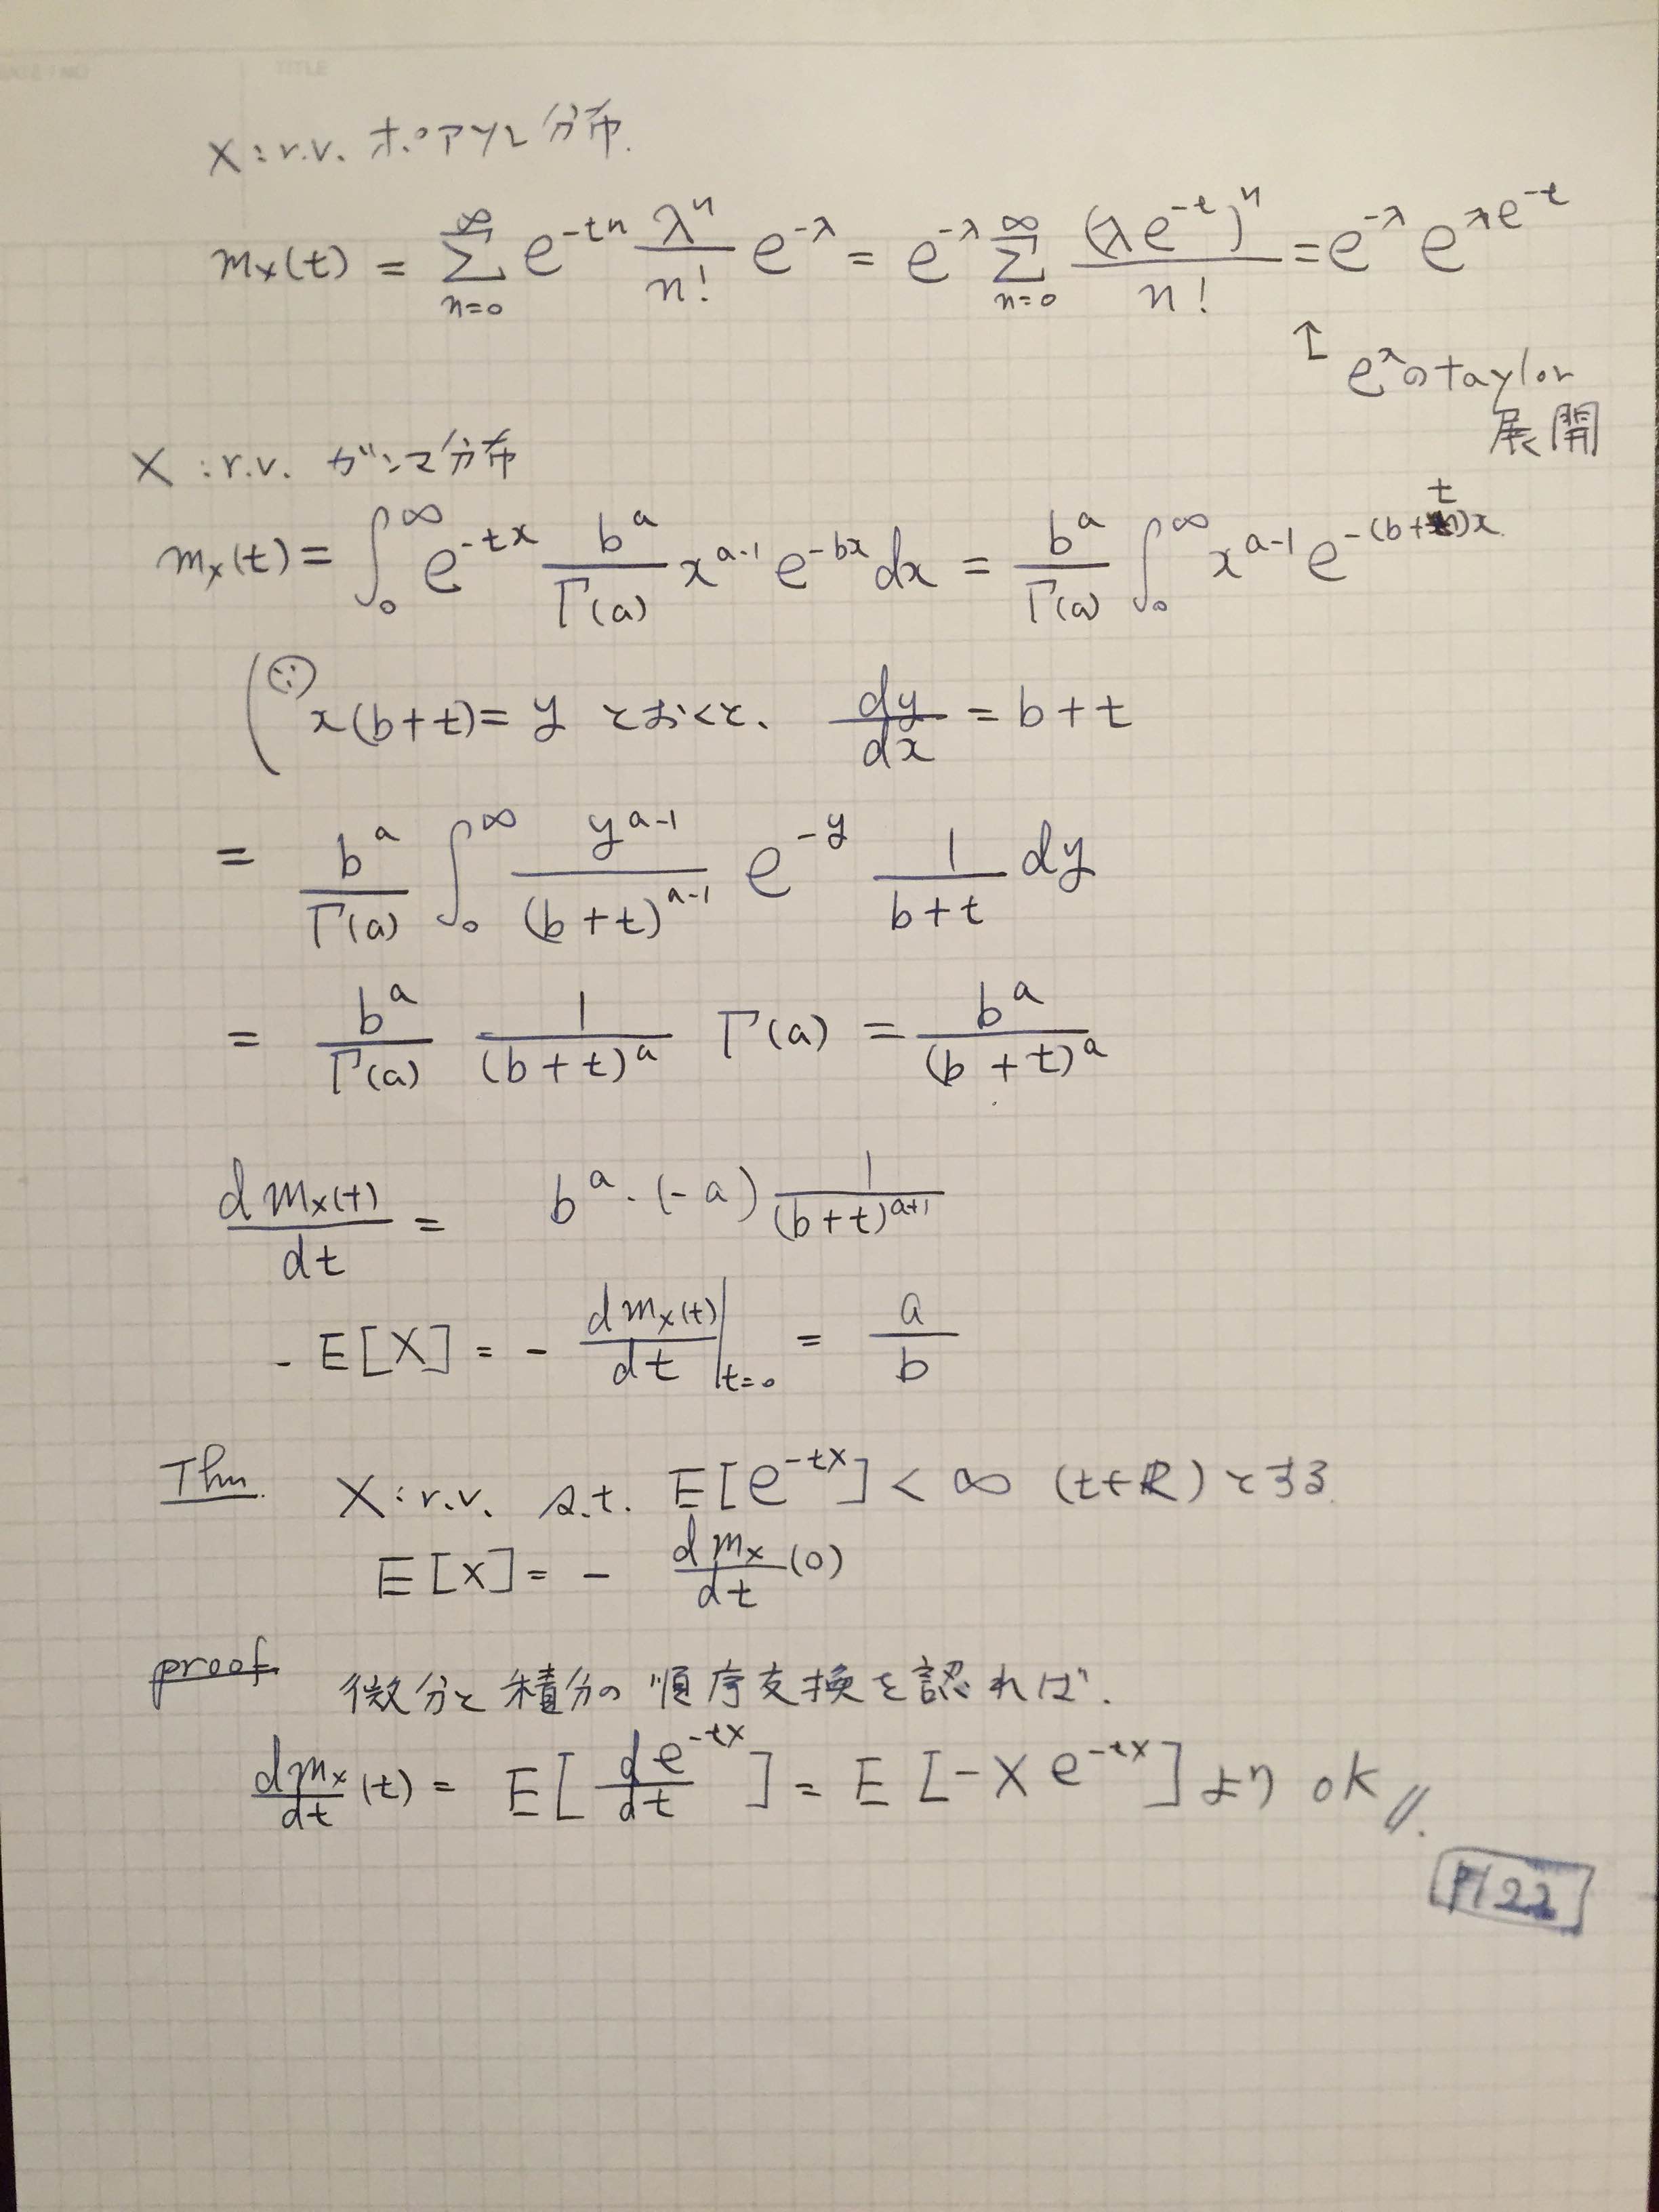 TITLE
X : r.v. ポアソン分布.
m_X(t) = Σ_{n=0}^{∞} e^{-tn} λ^n/n! e^{-λ} = e^{-λ} Σ_{n=0}^{∞} (λe^{-t})^n/n! = e^{-λ} e^{λe^{-t}}
↑ e^xのtaylor
展開
X : r.v. ガンマ分布
m_X(t) = ∫_0^∞ e^{-tx} b^a/Γ(a) x^{a-1} e^{-bx} dx = b^a/Γ(a) ∫_0^∞ x^{a-1} e^{-(b+t)x}
(∵ x(b+t) = y とおくと、 dy/dx = b+t
= b^a/Γ(a) ∫_0^∞ y^{a-1}/(b+t)^{a-1} e^{-y} 1/(b+t) dy
= b^a/Γ(a) 1/(b+t)^a Γ(a) = b^a/(b+t)^a
dm_X(t)/dt = b^a・(-a) 1/(b+t)^{a+1}
- E[X] = - dm_X(t)/dt|_{t=0} = a/b
Thm. X : r.v. s.t. E[e^{-tX}] < ∞ (t∈ℝ) とする.
E[X] = - dm_X/dt (0)
proof. 微分と積分の順序交換を認れば.
dm_X/dt (t) = E[de^{-tX}/dt] = E[-Xe^{-tX}] より ok //.
P122